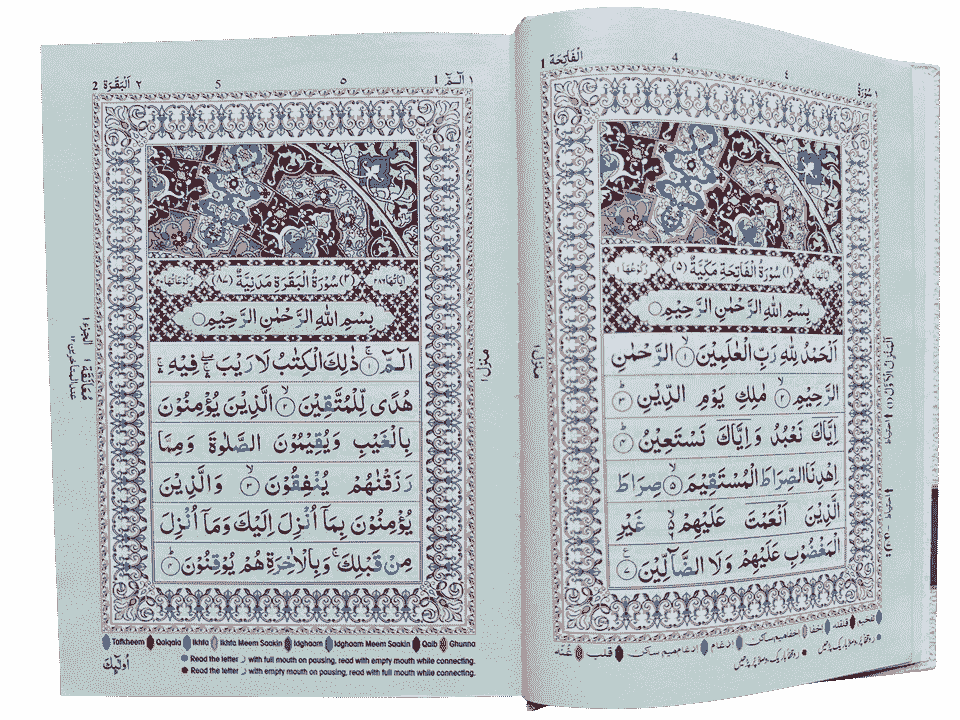 ١ سُوْرَةُ
٤
4
اَلْفَاتِحَة 1
(١) سُوْرَةُ الْفَاتِحَةِ مَكِّيَّةٌ (٥)
بِسْمِ اللهِ الرَّحْمٰنِ الرَّحِيْمِ
اَلْحَمْدُ لِلّٰهِ رَبِّ الْعٰلَمِيْنَ ١ الرَّحْمٰنِ
الرَّحِيْمِ ٢ مٰلِكِ يَوْمِ الدِّيْنِ ٣
اِيَّاكَ نَعْبُدُ وَاِيَّاكَ نَسْتَعِيْنُ ٤
اِهْدِنَا الصِّرَاطَ الْمُسْتَقِيْمَ ٥ صِرَاطَ
الَّذِيْنَ اَنْعَمْتَ عَلَيْهِمْ ٦ غَيْرِ
الْمَغْضُوْبِ عَلَيْهِمْ وَلَا الضَّآلِّيْنَ ٧
تفخیم قلقلہ اخفا اخفا میم ساکن ادغام ادغام میم ساکن قلب غُنّه
منزل ١
١ الٓمّٓ 1
٥
5
٢ اَلْبَقَرَة 2
اٰيَاتُهَا ٢٨٦ (٢) سُوْرَةُ الْبَقَرَةِ مَدَنِيَّةٌ (٨٧) رُكُوْعَاتُهَا
بِسْمِ اللهِ الرَّحْمٰنِ الرَّحِيْمِ
الٓمّٓ ١ ذٰلِكَ الْكِتٰبُ لَا رَيْبَ فِيْهِ
هُدًى لِّلْمُتَّقِيْنَ ٢ الَّذِيْنَ يُؤْمِنُوْنَ
بِالْغَيْبِ وَيُقِيْمُوْنَ الصَّلٰوةَ وَمِمَّا
رَزَقْنٰهُمْ يُنْفِقُوْنَ ٣ وَالَّذِيْنَ
يُؤْمِنُوْنَ بِمَآ اُنْزِلَ اِلَيْكَ وَمَآ اُنْزِلَ
مِنْ قَبْلِكَ وَبِالْاٰخِرَةِ هُمْ يُوْقِنُوْنَ ٤
Tafkheem Qalqala Ikhfa Ikhfa Meem Saakin Idghaam Idghaam Meem Saakin Qalb Ghunna
Read the letter ر with full mouth on pausing, read with empty mouth when connecting.
Read the letter ر with empty mouth on pausing, read with full mouth while connecting.
اُولٰٓئِكَ
منزل ١
الجزء ١
مُعَانَقَة ١